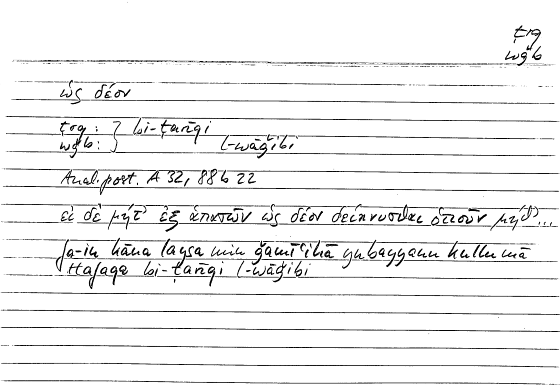 ṭrq
wǧb
ὡς δέον
ṭrq : } bi-ṭarīqi
wǧb : l-wāǧibi
Anal. post. A 32, 88b 22
εἰ δὲ μήτ᾽ ἐξ ἁπασῶν ὡς δέον δείκνυσθαι ὁτιοῦν μήθ᾽...
fa-in kāna laysa min ǧamīʿihā yubayyanu kullu mā
ttafaqa bi-ṭarīqi l-wāǧibi